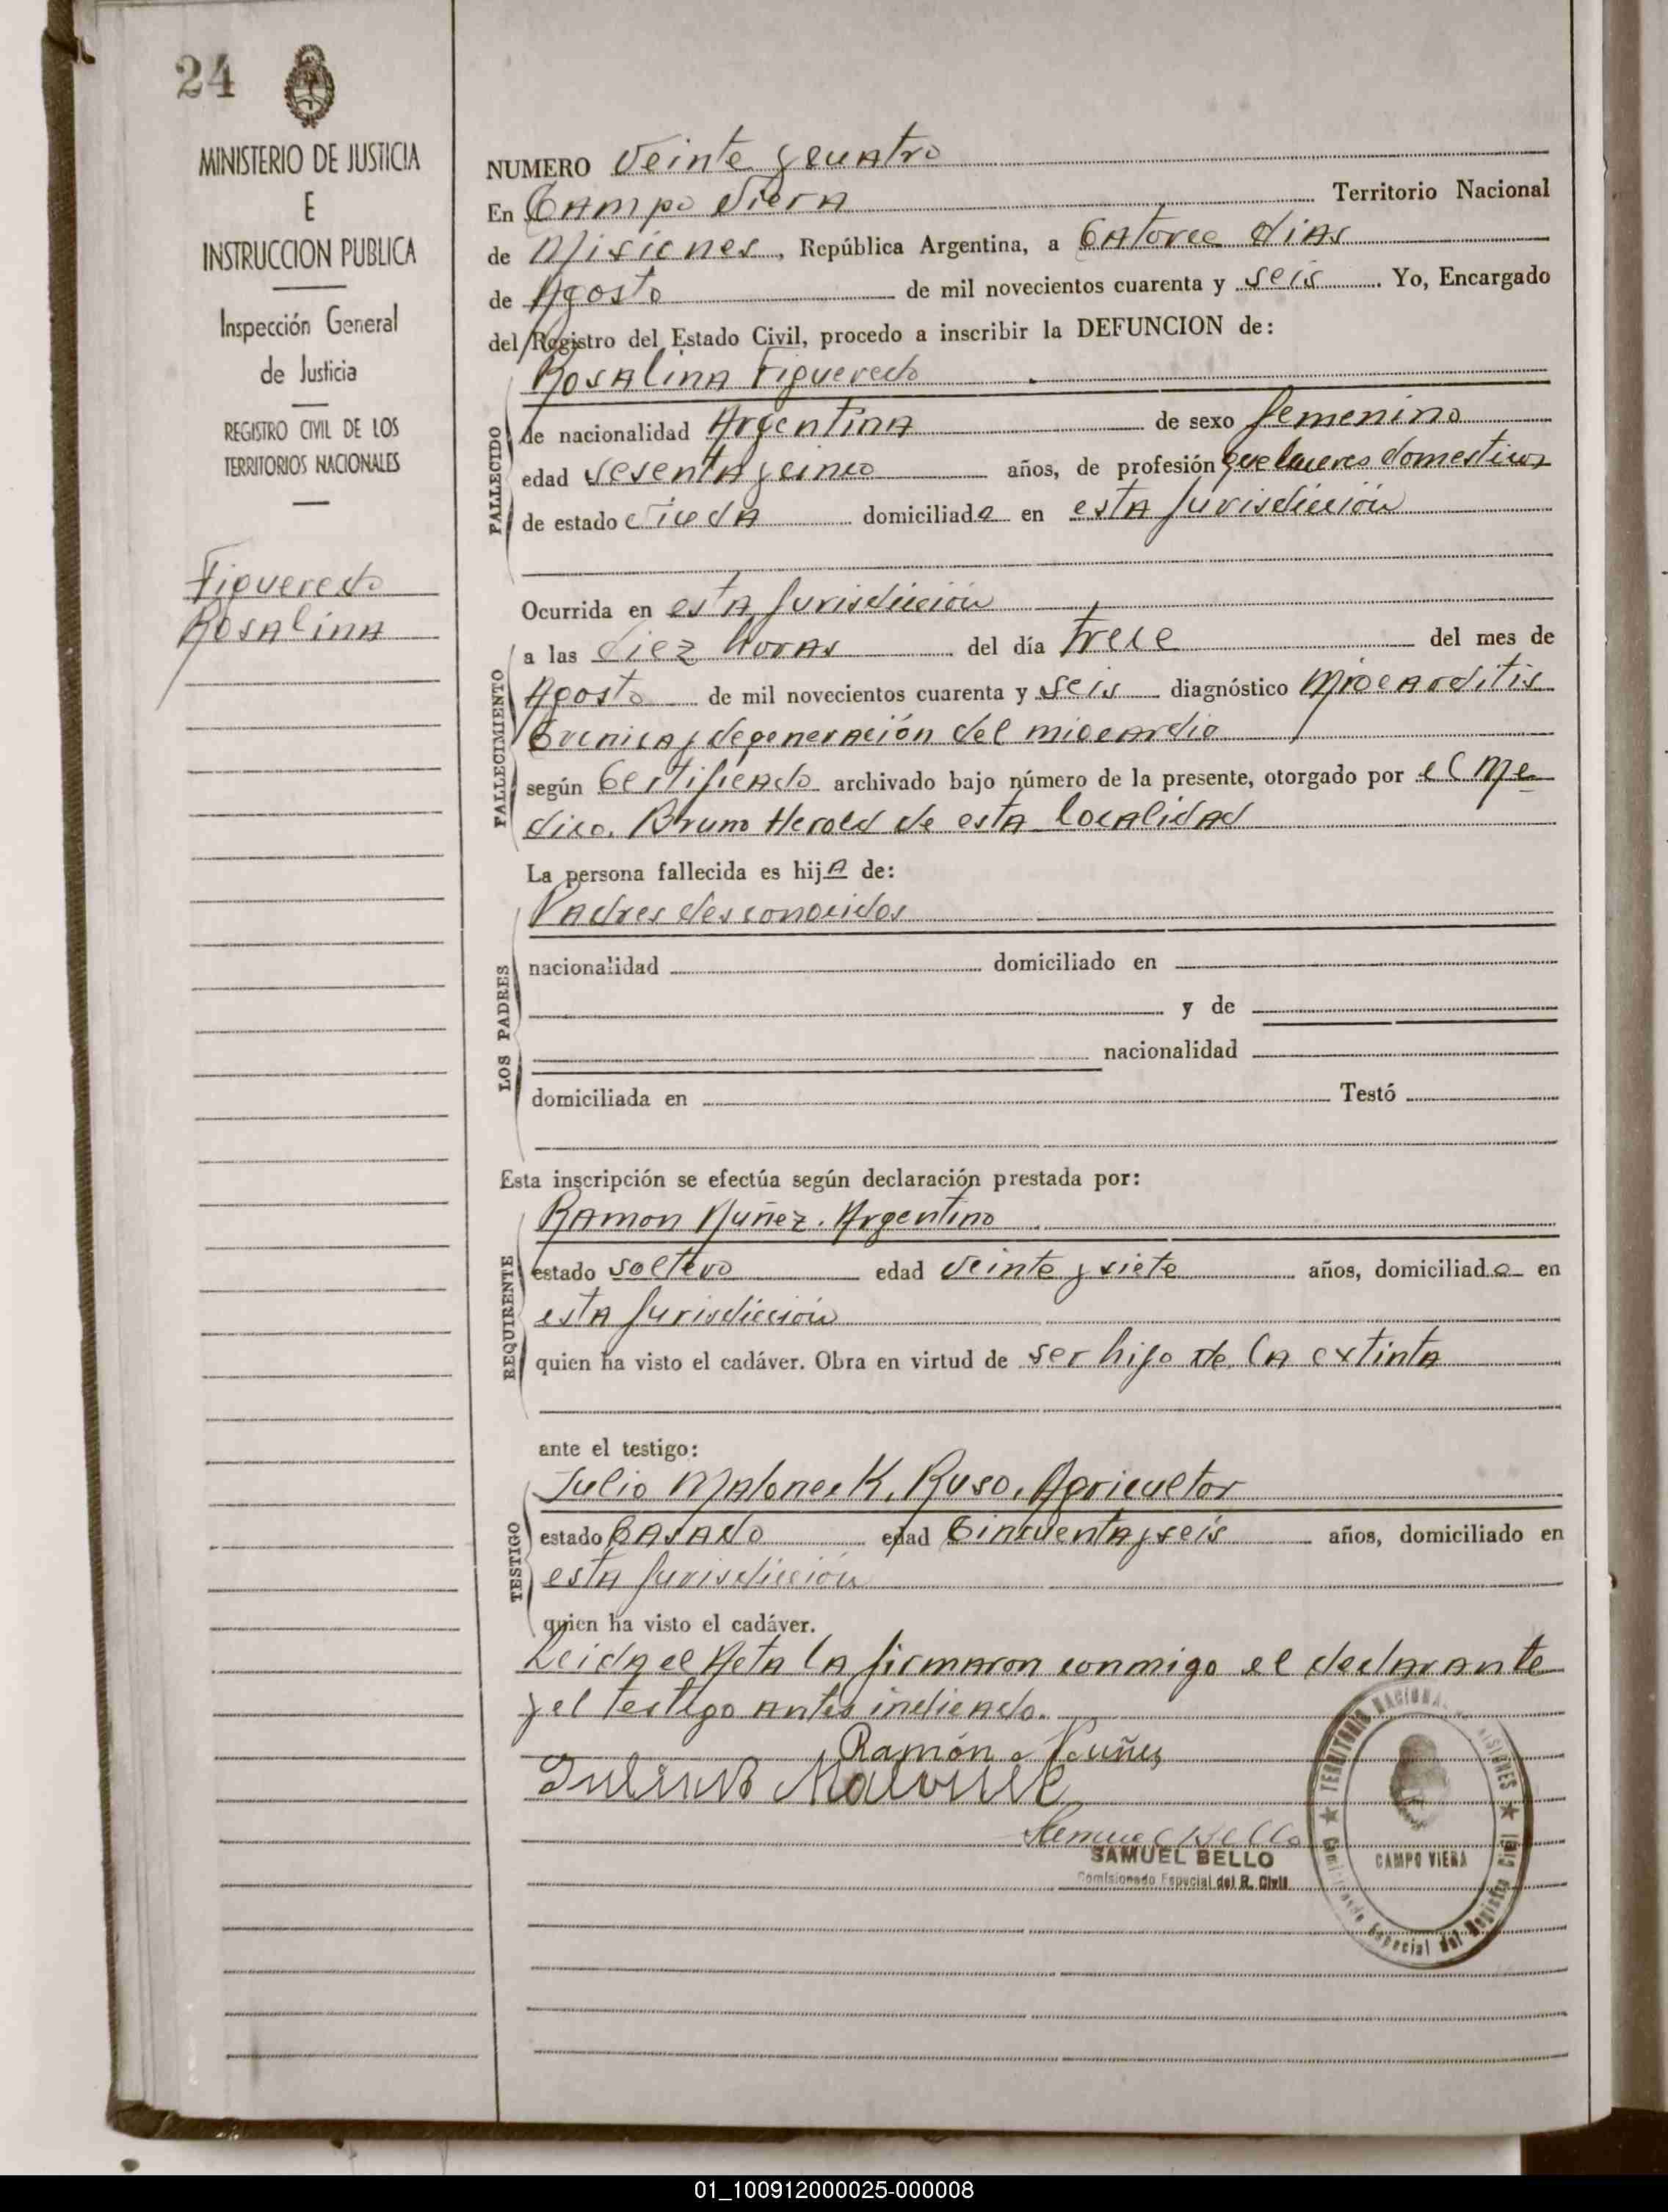 24
MINISTERIO DE JUSTICIA
E
INSTRUCCION PUBLICA
Inspección General
de Justicia
REGISTRO CIVIL DE LOS
TERRITORIOS NACIONALES
Figueredo
Rosalina
NUMERO Veinte y cuatro
En Campo Viera Territorio Nacional
de Misiones, República Argentina, a Catorce dias
de Agosto de mil novecientos cuarenta y seis. Yo, Encargado
del Registro del Estado Civil, procedo a inscribir la DEFUNCION de:
Rosalina Figueredo
FALLECIDO
de nacionalidad Argentina de sexo femenino
edad sesenta y cinco años, de profesión quehaceres domesticos
de estado domiciliada en esta jurisdicción
Ocurrida en esta jurisdicción
FALLECIMIENTO
a las diez horas del día trece del mes de
Agosto de mil novecientos cuarenta y seis diagnóstico Miocarditis
Cronica y degeneración del miocardio
según Certificado archivado bajo número de la presente, otorgado por el Me-
dico. Bruno Herold de esta localidad
La persona fallecida es hija de:
Padres desconocidos
LOS PADRES
nacionalidad domiciliado en
y de
nacionalidad
domiciliada en Testó
Esta inscripción se efectúa según declaración prestada por:
Ramon Nuñez. Argentino
REQUIRENTE
estado soltero edad veinte y siete años, domiciliado en
esta jurisdicción
quien ha visto el cadáver. Obra en virtud de ser hijo de la extinta
ante el testigo:
Julio Ruso. Agricultor
TESTIGO
estado Casado edad Cincuenta y seis años, domiciliado en
esta jurisdicción
quien ha visto el cadáver.
Leida el Acta la firmaron conmigo el declarante
y el testigo antes indicado.
Ramón Nuñez
Samuel Bello
SAMUEL BELLO
Comisionado Especial del R. Civil
TERRITORIO NACIONAL DE MISIONES
CAMPO VIERA
Especial del Registro Civil
01_100912000025-000008